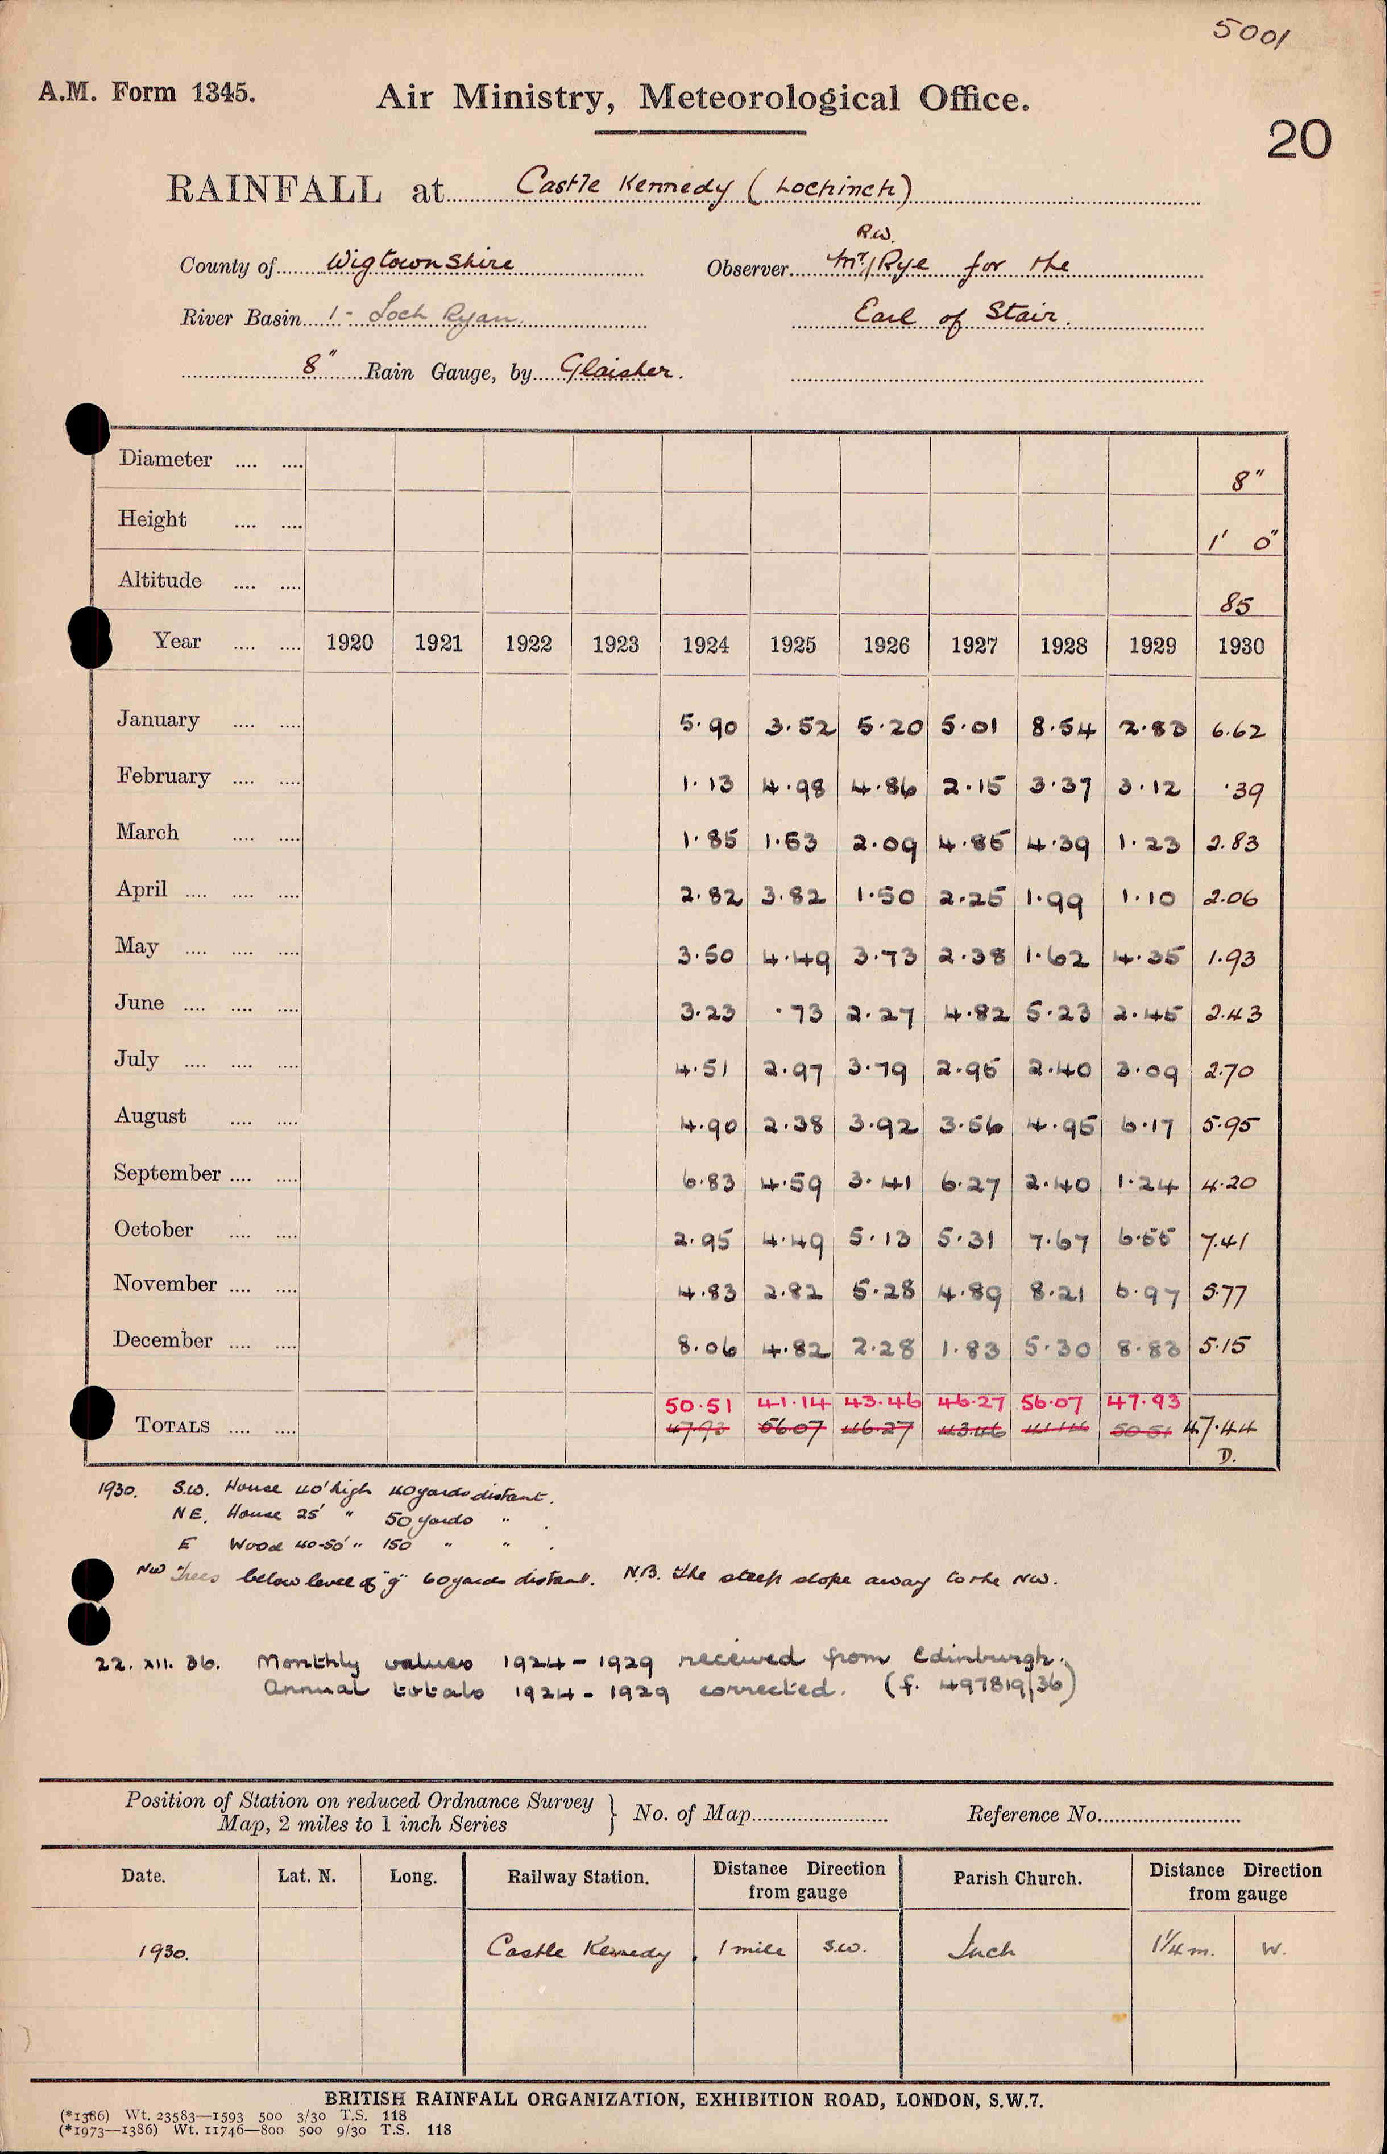 5001
A.M. Form 1345.
Air Ministry, Meteorological Office.
20
RAINFALL at Castle Kennedy (Lochinch)
R.W.
County of Wigtownshire Observer Mr/Rye for the
River Basin 1 - Loch Ryan Earl of Stair.
8" Rain Gauge, by Glaisher.
Diameter 8"
Height 1' 0"
Altitude 85
Year 1920 1921 1922 1923 1924 1925 1926 1927 1928 1929 1930
January 5.90 3.52 5.20 5.01 8.54 2.83 6.62
February 1.13 4.98 4.86 2.15 3.37 3.12 .39
March 1.85 1.53 2.09 4.85 4.39 1.23 2.83
April 2.82 3.82 1.50 2.25 1.99 1.10 2.06
May 3.50 4.49 3.73 2.38 1.62 4.35 1.93
June 3.23 .73 2.27 4.82 5.23 2.45 2.43
July 4.51 2.97 3.79 2.95 2.40 3.09 2.70
August 4.90 2.38 3.92 3.56 4.95 6.17 5.95
September 6.83 4.59 3.41 6.27 2.40 1.24 4.20
October 2.95 4.49 5.13 5.31 7.67 6.55 7.41
November 4.83 2.82 5.28 4.89 8.21 6.97 5.77
December 8.06 4.82 2.28 1.83 5.30 8.83 5.15
50.51 41.14 43.46 46.27 56.07 47.93
TOTALS 47.93 56.07 46.27 43.46 41.14 50.51 47.44
D.
1930. S.W. House 40' high 40 yards distant.
NE. House 25' " 50 yards " .
E Wood 40-50' " 150 " " .
NW Trees below level of "g" 60 yards distant. N.B. the steep slope away to the NW.
22. XII. 36. Monthly values 1924 - 1929 received from Edinburgh.
Annual totals 1924 - 1929 corrected. (f. 497819/36)
Position of Station on reduced Ordnance Survey
Map, 2 miles to 1 inch Series } No. of Map Reference No.
Date. Lat. N. Long. Railway Station. Distance Direction from gauge Parish Church. Distance Direction from gauge
1930. Castle Kennedy . 1 mile S.W. Inch 1¼ m. W.
BRITISH RAINFALL ORGANIZATION, EXHIBITION ROAD, LONDON, S.W.7.
(*1386) Wt. 23583—1593 500 3/30 T.S. 118
(*1973—1386) Wt. 11746—800 500 9/30 T.S. 118